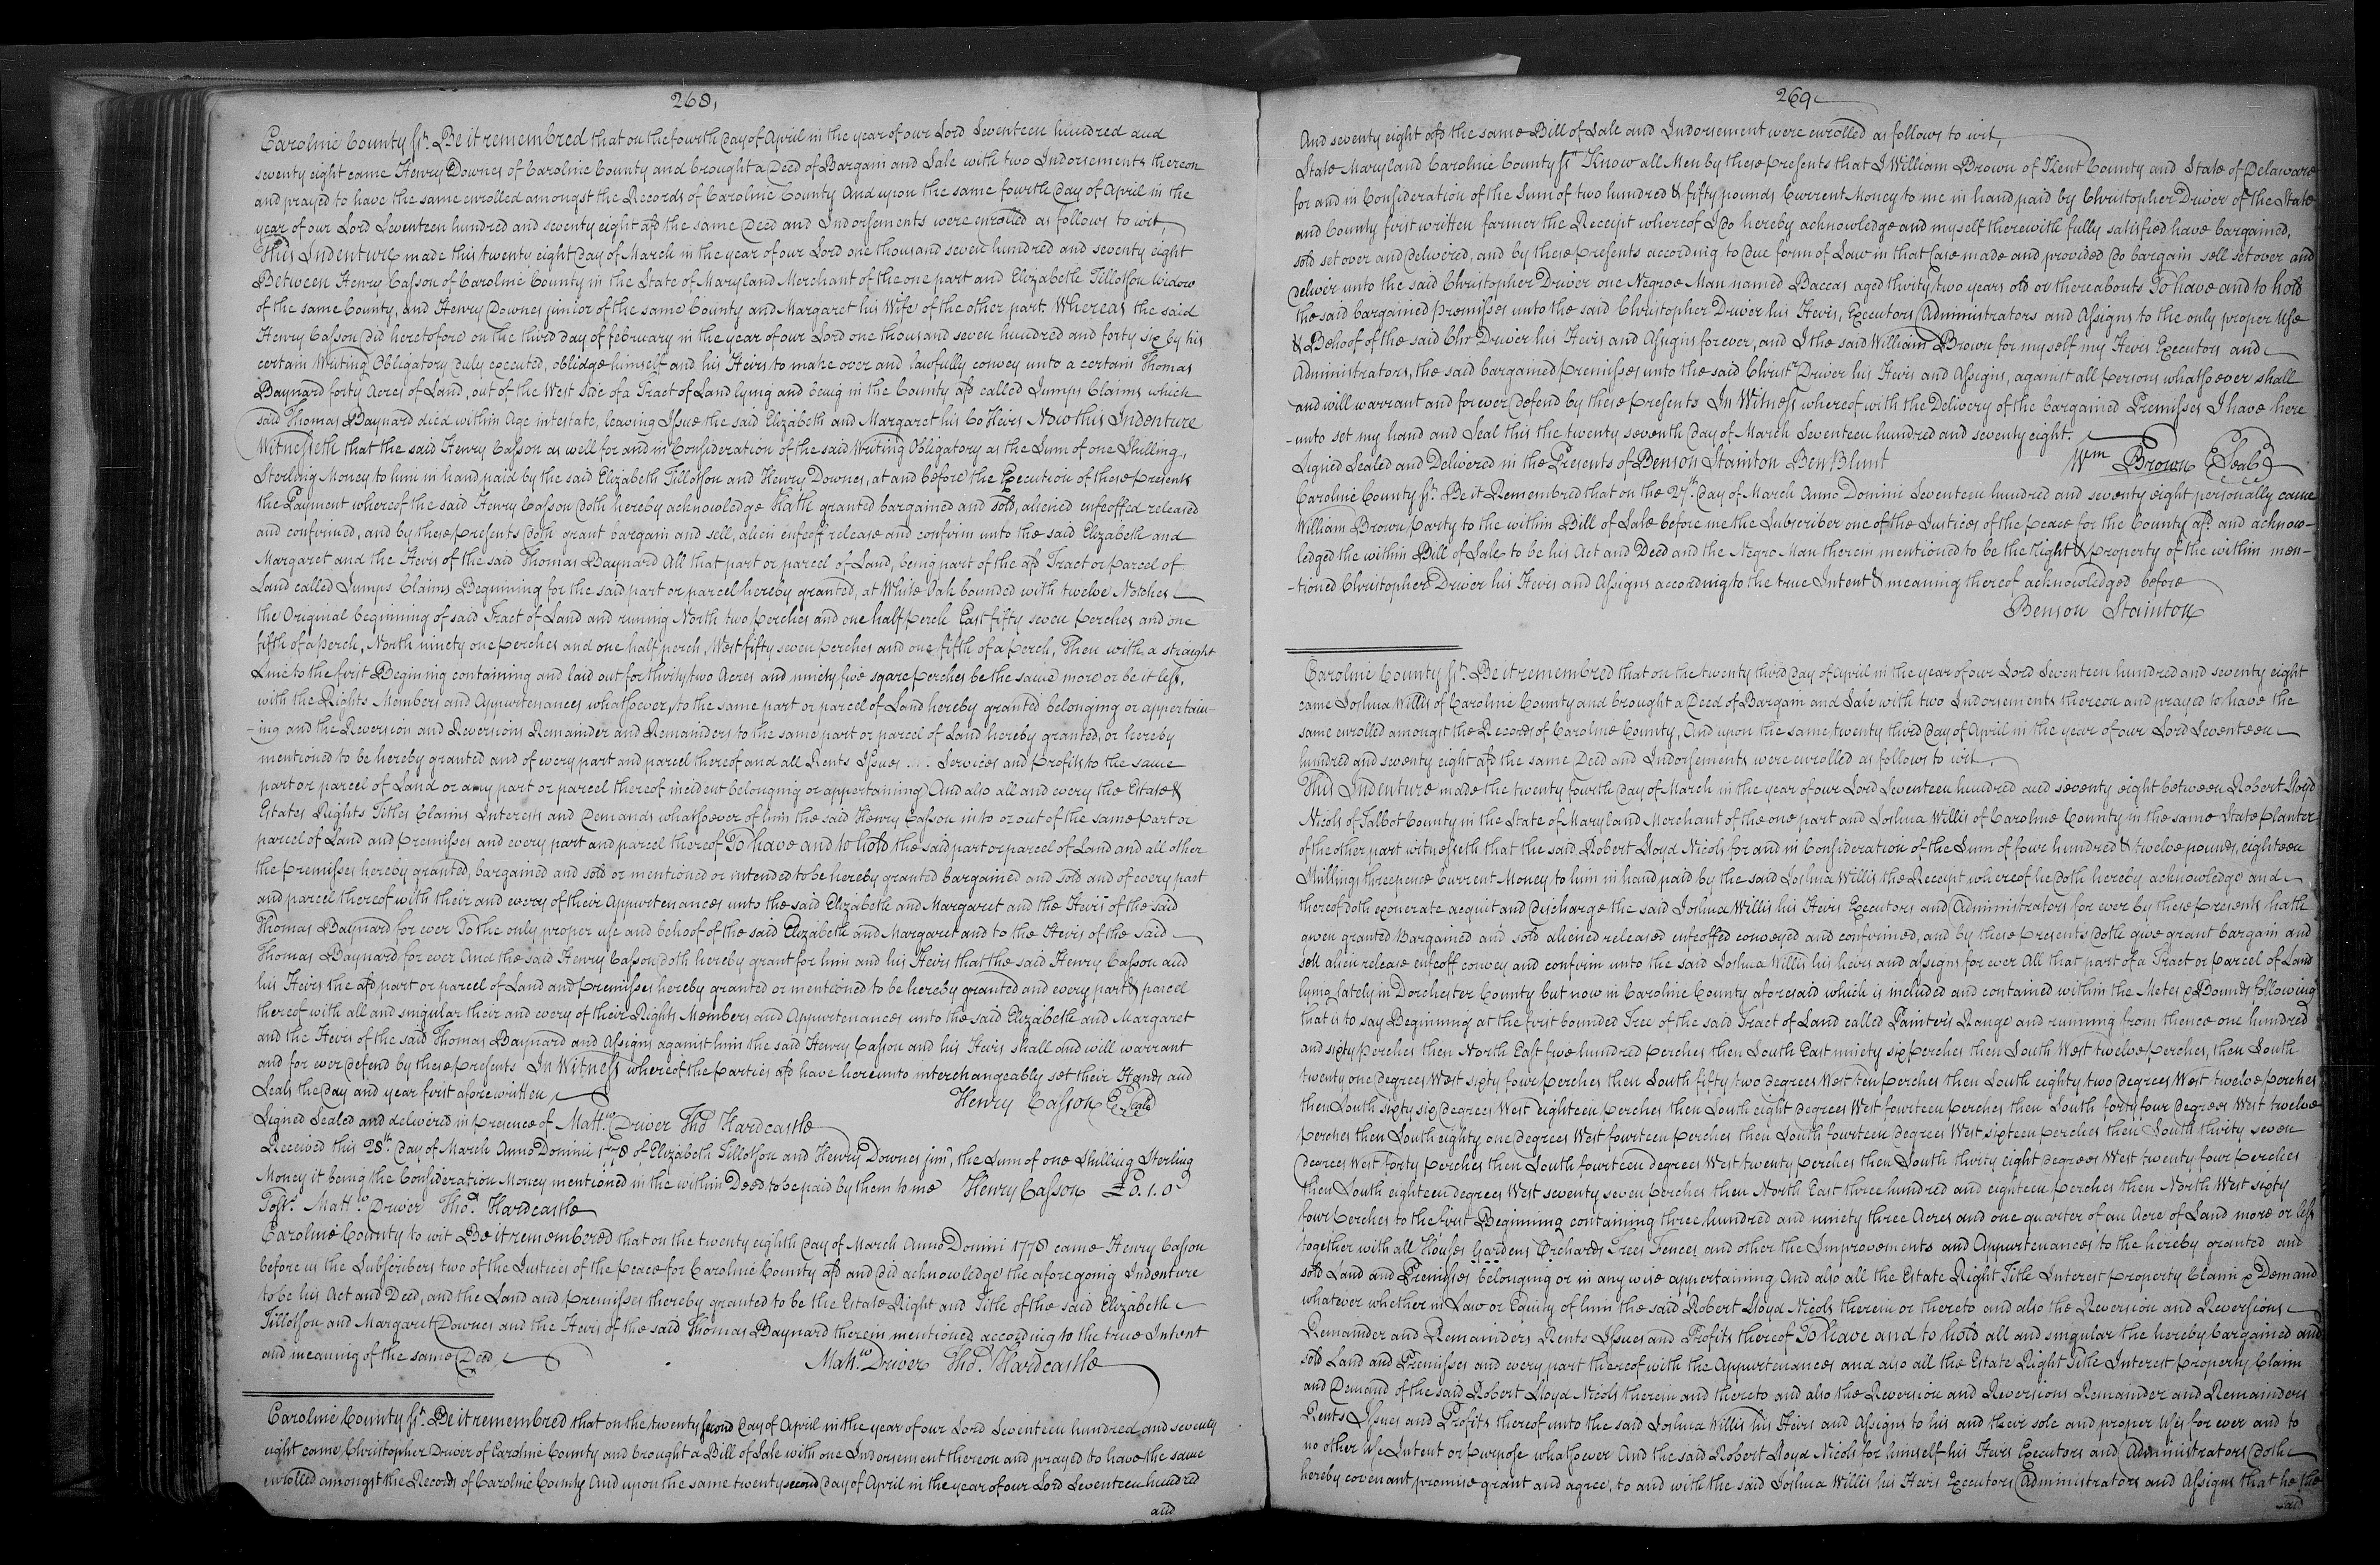 268,
Caroline County ss. Be it remembred that on the fourth Day of April in the year of our Lord Seventeen hundred and
seventy eight came Henry Downes of Caroline County and brought a Deed of Bargain and Sale with two Indorsements thereon
and prayed to have the same enrolled amongst the Records of Caroline County And upon the same fourth Day of April in the
year of our Lord Seventeen hundred and seventy eight afd the same Deed and Indorsements were enrolled as follows to wit,
This Indenture made this twenty eight Day of March in the year of our Lord one thousand seven hundred and seventy eight
Between Henry Casson of Caroline County in the State of Maryland Merchant of the one part and Elizabeth Tillotson Widow
of the same County, and Henry Downes junior of the same County and Margaret his Wife of the other part. Whereas the said
Henry Casson Did heretofore on the third Day of february in the year of our Lord one thousand seven hundred and forty six by his
certain Writing Obligatory Duly executed, obliedge himself and his Heirs to make over and lawfully convey unto a certain Thomas
Baynard forty Acres of Land, out of the West Side of a Tract of Land lying and being in the County afd called Jumps Claims which
said Thomas Baynard died within Age intestate, leaving Issue the said Elizabeth and Margaret his Co Heirs Now this Indenture
Witnesseth that the said Henry Casson as well for and in Consideration of the said Writing Obligatory as the Sum of one Shilling,
Sterling Money to him in hand paid by the said Elizabeth Tillotson and Henry Downes, at and before the Execution of these presents
the Payment whereof the said Henry Casson Doth hereby acknowledge hath granted bargained and sold, aliened enfeoffed released
and confirmed, and by these presents Doth grant bargain and sell, alien enfeoff release and confirm unto the said Elizabeth and
Margaret and the Heirs of the said Thomas Baynard All that part or parcel of Land, being part of the afd Tract or parcel of
Land called Jumps Claims Beginning for the said part or parcel hereby granted, at White Oak bounded with twelve Notches
the Original beginning of said Tract of Land and runing North two perches and one half perch East fifty seven perches and one
fifth of a perch, North ninety one perches and one half perch, West fifty seven perches and one fifth of a perch, Then with a straight
Line to the first Begining containing and laid out for thirty two Acres and ninety five sqare perches be the same more or be it less,
with the Rights Members and Appurtenances whatsoever, to the same part or parcel of Land hereby granted belonging or appertain-
-ing and the Reversion and Reversions Remainder and Remainders to the same part or parcel of Land hereby granted, or hereby
mentioned to be hereby granted and of every part and parcel thereof and all Rents Issues ... Services and profits to the same
part or parcel of Land or any part or parcel thereof incident belonging or appertaining And also all and every the Estate &
Estates Rights Titles Claims Interests and Demands whatsoever of him the said Henry Casson in to or out of the same Part or
parcel of Land and premisses and every part and parcel thereof To have and to hold the said part or parcel of Land and all other
the premisses hereby granted, bargained and sold or mentioned or intended to be hereby granted bargained and sold and of every part
and parcel thereof with their and every of their Appurtenances unto the said Elizabeth and Margaret and the Heirs of the said
Thomas Baynard for ever To the only proper use and behoof of the said Elizabeth and Margaret and to the Heirs of the said
Thomas Baynard, for ever And the said Henry Casson Doth hereby grant for him and his Heirs that the said Henry Casson and
his Heirs the afd part or parcel of Land and premisses hereby granted or mentioned to be hereby granted and every part & parcel
thereof with all and singular their and every of their Rights Members and Appurtenances unto the said Elizabeth and Margaret
and the Heirs of the said Thomas Baynard and Assigns against him the said Henry Casson and his Heirs shall and will warrant
and for ever Defend by these presents In Witness whereof the parties afd have hereunto interchangeably set their Hands and
Seals the Day and year first afore written
Henry Casson Seale
Signed Sealed and delivered in presence of Mattw. Driver Tho.s Hardcastle
Received this 28th. Day of March Anno Domini 1778 of Elizabeth Tillotson and Henry Downes junr, the Sum of one Shilling Sterling
Money it being the Consideration Money mentioned in the within Deed to be paid by them to me Henry Casson £0.1.0
Test. Mattw. Driver Tho.s Hardcastle
Caroline County to wit Be it remembered that on the twenty eighth Day of March Anno Domini 1778 came Henry Casson
before us the Subscribers two of the Justices of the Peace for Caroline County afd and Did acknowledge the aforegoing Indenture
to be his Act and Deed, and the Land and premisses thereby granted to be the Estate Right and Title of the said Elizabeth
Tillotson and Margaret Downes and the Heirs of the said Thomas Baynard therein mentioned according to the true Intent
and meaning of the same Deed,
Mattw. Driver Tho.s Hardcastle
Caroline County ss. Be it remembred that on the twenty second Day of April in the year of our Lord Seventeen hundred and seventy
eight came Christopher Driver of Caroline County and brought a Bill of Sale with one Indorsement thereon and prayed to have the same
enrolled amongst the Records of Caroline County And upon the same twenty second Day of April in the year of our Lord Seventeen hundred
and
269
And seventy eight afd the same Bill of Sale and Indorsement were enrolled as follows to wit,
State Maryland Caroline County ss. Know all Men by these presents that I William Brown of Kent County and State of Delaware
for and in Consideration of the Sum of two hundred & fifty pounds Current Money to me in hand paid by Christopher Driver of the State
and County first written farmer the Receipt whereof I Do hereby acknowledge and myself therewith fully satisfied have bargained,
sold set over and Delivered, and by these presents according to Due form of Law in that Case made and provided Do bargain sell set over and
Deliver unto the said Christopher Driver one Negroe Man named Baccas aged thirty two years old or thereabouts To have and to hold
the said bargained premisses unto the said Christopher Driver his Heirs, Executors Administrators and Assigns to the only proper Use
& Behoof of the said Chr Driver his Heirs and Assigns forever, and I the said William Brown for myself my Heirs Executors and
Administrators, the said bargained premisses unto the said Christr. Driver his Heirs and Assigns, against all persons whatsoever shall
and will warrant and forever Defend by these presents In Witness whereof with the Delivery of the bargained Premisses I have here
-unto set my hand and Seal this the twenty seventh Day of March Seventeen hundred and seventy eight.
Signed Sealed and Delivered in the Presents of Benson Stainton Ben Blunt
Wm Brown Seal
Caroline County ss. Be it Remembred that on the 27th. Day of March Anno Domini Seventeen hundred and seventy eight personally came
William Brown party to the within Bill of Sale before me the Subscriber one of the Justices of the peace for the County afd and acknow-
ledged the within Bill of Sale to be his Act and Deed and the Negro Man therein mentioned to be the Right & property of the within men-
-tioned Christopher Driver his Heirs and Assigns according to the true Intent & meaning thereof acknowledged before
Benson Stainton
Caroline County ss. Be it remembred that on the twenty third Day of April in the year of our Lord Seventeen hundred and seventy eight
came Joshua Willis of Caroline County and brought a Deed of Bargain and Sale with two Indorsements thereon and prayed to have the
same enrolled amongst the Records of Caroline County, And upon the same, twenty third Day of April in the year of our Lord Seventeen
hundred and seventy eight afd the same Deed and Indorsements were enrolled as follows to wit,
This Indenture made the twenty fourth Day of March in the year of our Lord Seventeen hundred and seventy eight between Robert Lloyd
Nicols of Talbot County in the State of Maryland Merchant of the one part and Joshua Willis of Caroline County in the same State planter
of the other part witnesseth that the said Robert Lloyd Nicols for and in Consideration of the Sum of four hundred & twelve pounds, eighteen
Shillings threepence Current Money to him in hand paid by the said Joshua Willis the Receipt whereof he Doth hereby acknowledge and
thereof doth exonerate acquit and Discharge the said Joshua Willis his Heirs Executors and Administrators for ever by these presents hath
given granted Bargained and sold aliened released enfeoffed conveyed and confirmed, and by these presents Doth give grant bargain and
sell alien release enfeoff convey and confirm unto the said Joshua Willis his heirs and assigns for ever All that part of a Tract or parcel of Land
lying lately in Dorchester County but now in Caroline County aforesaid which is included and contained within the Metes & Bounds following
that is to say Beginning at the first bounded Tree of the said Tract of Land called Painters Range and running from thence one hundred
and sixty perches then North East five hundred perches then South East ninety six perches then South West twelve perches, then South
twenty one degrees West sixty four perches then South fifty two degrees West ten perches then South eighty two degrees West twelve perches
then South sixty six degrees West eighteen perches then South eight degrees West fourteen perches then South forty four degrees West twelve
perches then South eighty one degrees West fourteen perches then South fourteen degrees West sixteen perches then South thirty seven
degrees West forty perches then South fourteen degrees West twenty perches then South thirty eight degrees West twenty four perches
then South eighteen degrees West seventy seven perches then North East three hundred and eighteen perches then North West sixty
four perches to the first Beginning containing three hundred and ninety three Acres and one quarter of an Acre of Land more or less
together with all Houses Gardens Orchards Trees Fences and other the Improvements and Appurtenances to the hereby granted and
sold Land and Premisses belonging or in any wise appertaining And also all the Estate Right Title Interest property Claim & Demand
whatever whether in Law or Equity of him the said Robert Lloyd Nicols therein or thereto and also the Reversion and Reversions
Remainder and Remainders Rents Issues and Profits thereof To have and to hold all and singular the hereby bargained and
sold Land and Premisses and every part thereof with the Appurtenances and also all the Estate Right Title Interest property Claim
and Demand of the said Robert Lloyd Nicols therein and thereto and also the Reversion and Reversions Remainder and Remainders
Rents Issues and Profits thereof unto the said Joshua Willis his Heirs and Assigns to his and their sole and proper Uses for ever and to
no other Use Intent or Purpose whatsoever And the said Robert Lloyd Nicols for himself his Heirs Executors and Administrators Doth
hereby covenant promise grant and agree, to and with the said Joshua Willis his Heirs Executors Administrators and Assigns that he the
said